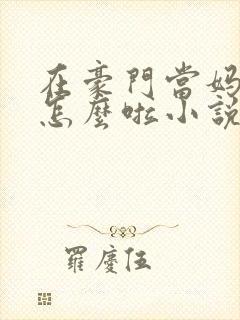 在豪門當媽
怎麼啦小說
羅慶伍